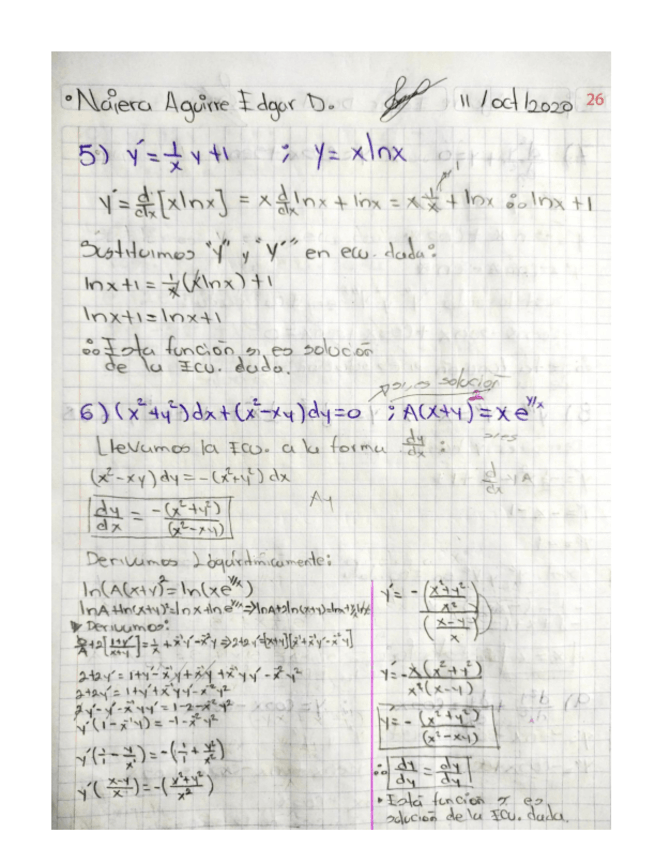 • Najera Aguirre Edgar D. 11/oct/2020 26
5) y' = 1/x y + 1 ; y = x ln x
y' = d/dx [x ln x] = x d/dx ln x + ln x = x 1/x + ln x ∴ ln x + 1
Sustituimos "y" y "y'" en ecu. dada:
ln x + 1 = 1/x (x ln x) + 1
ln x + 1 = ln x + 1
∴ Esta función si es solución
de la Ecu. dada.
si es solución
6) (x²+y²)dx + (x²-xy)dy = 0 ; A(x+y)² = x e^(y/x)
Llevamos la Ecu. a la forma dy/dx :
(x²-xy)dy = -(x²+y²)dx
dy/dx = -(x²+y²)/(x²-xy)
Ay
Derivamos Logarítmicamente:
ln(A(x+y)² = ln(xe^(y/x))
lnA + ln(x+y)² = ln x + ln e^(y/x) ⇒ lnA + 2ln(x+y) = lnx + y/x lne
Derivamos:
2+2y' = 1+y'-x⁻¹y+x⁻¹y+x⁻¹yy'-x⁻²y²
2+2y' = 1+y'+x⁻¹yy'-x⁻²y²
2y'-y'-x⁻¹yy' = 1-2-x⁻²y²
y'(1-x⁻¹y) = -1-x⁻²y²
y'(1/1 - y/x) = -(1/1 + y²/x²)
y'((x-y)/x) = -((x²+y²)/x²)
y' = -(((x²+y²)/x²)/((x-y)/x))
y' = -x(x²+y²)/x²(x-y)
y' = -(x²+y²)/(x²-xy)
∴ dy/dy = dy/dy
• Esta función si es
solución de la Ecu. dada.